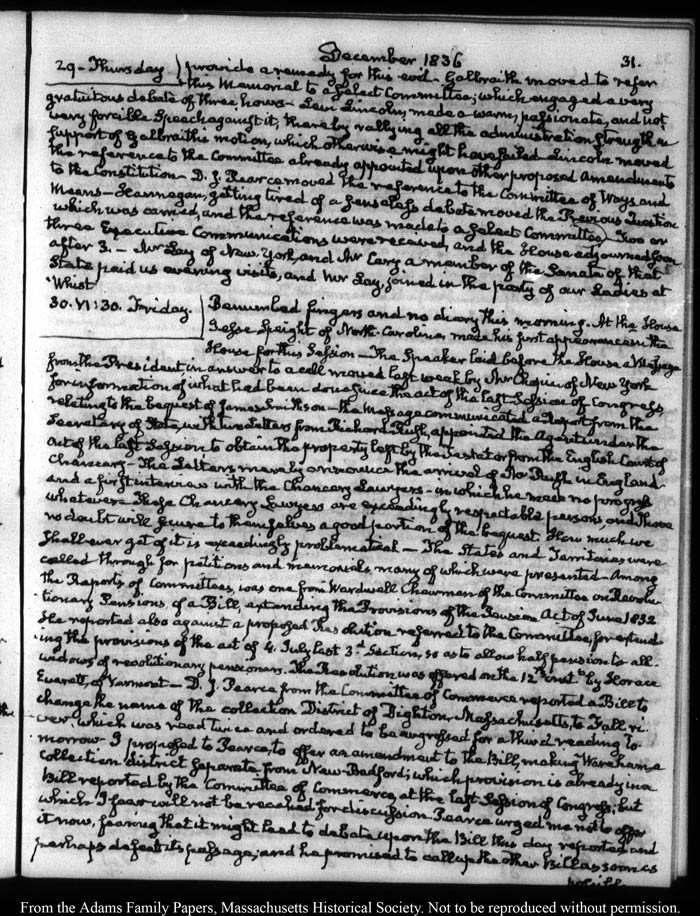 December 1836 31.
29. Thursday provide a remedy for this evil. Galbraith moved to refer
this Memorial to a Select Committee; which engaged a very
gratuitous debate of three hours. Levi Lincoln, made a warm, passionate, and not
very forcible Speech against it, thereby rallying all the administration strength in
support of Galbraith's motion, which otherwise might have failed. Lincoln moved
the reference to the Committee already appointed upon other proposed amendments
to the Constitution. D. J. Pearce moved the reference to the Committee of Ways and
Means— Hannegan, getting tired of a senseless debate moved the Previous Question
which was carried, and the reference was made to a Select Committee. Two or
three Executive Communications were received, and the House adjourned soon
after 3.— Mr Lay of New York, and Mr Cary a member of the Senate of that
State paid us evening visits, and Mr Lay, joined in the party of our Ladies at
Whist
30. VI:30. Friday. Benumbed fingers and no diary this morning. At the House
Jesse Speight of North-Carolina, made his first appearance in the
House for this Session— The Speaker laid before the House a Message
from the President in answer to a call moved last week by Mr Chapin of New York
for information of what had been done since the act of the last Session of Congress,
relating to the bequest of James Smithson— the Message communicated a Report from the
Secretary of State, with two Letters from Richard Rush, appointed the Agent under the
Act of the last Session to obtain the property left by the Testator from the English Court of
Chancery— The Letters merely announce the arrival of Mr Rush in England
and a first interview with the Chancery Lawyers— in which he made no progress
whatever. These Chancery Lawyers are exceedingly respectable persons, and
no doubt will secure to themselves a good portion of the bequest. How much we
shall ever get of it is exceedingly problematical— The States and Territories were
called through for petitions and memorials, many of which were presented— Among
the Reports of Committees, was one from Wardwell Chairman of the Committee on Revolu-
tionary Pensions, of a Bill, extending the Provisions of the Pension Act of June 1832
He reported also against a proposed Resolution referred to the Committee, for extend-
ing the provisions of the act of 4. July last 3d Section, so as to allow half pension to all
widows of revolutionary pensioners. The Resolution was offered on the 12th inst by Horace
Everett, of Vermont— D. J. Pearce from the Committee of Commerce reported a Bill to
change the name of the collection District of Dighton, Massachusetts, to Fall ri-
ver which was read twice and ordered to be engrossed for a third reading to-
morrow. I proposed to Pearce, to offer an amendment to the Bill, making Wareham, a
collection district separate from New-Bedford; which provision is already in a
Bill reported by the Committee of Commerce, at the last Session of Congress; but
which I fear will not be reached for discussion. Pearce urged me not to offer
it now, fearing that it might lead to debate upon the Bill this day reported and
perhaps defeat its passage; and he promised to call up the other Bill as soon as
From the Adams Family Papers, Massachusetts Historical Society. Not to be reproduced without permission.